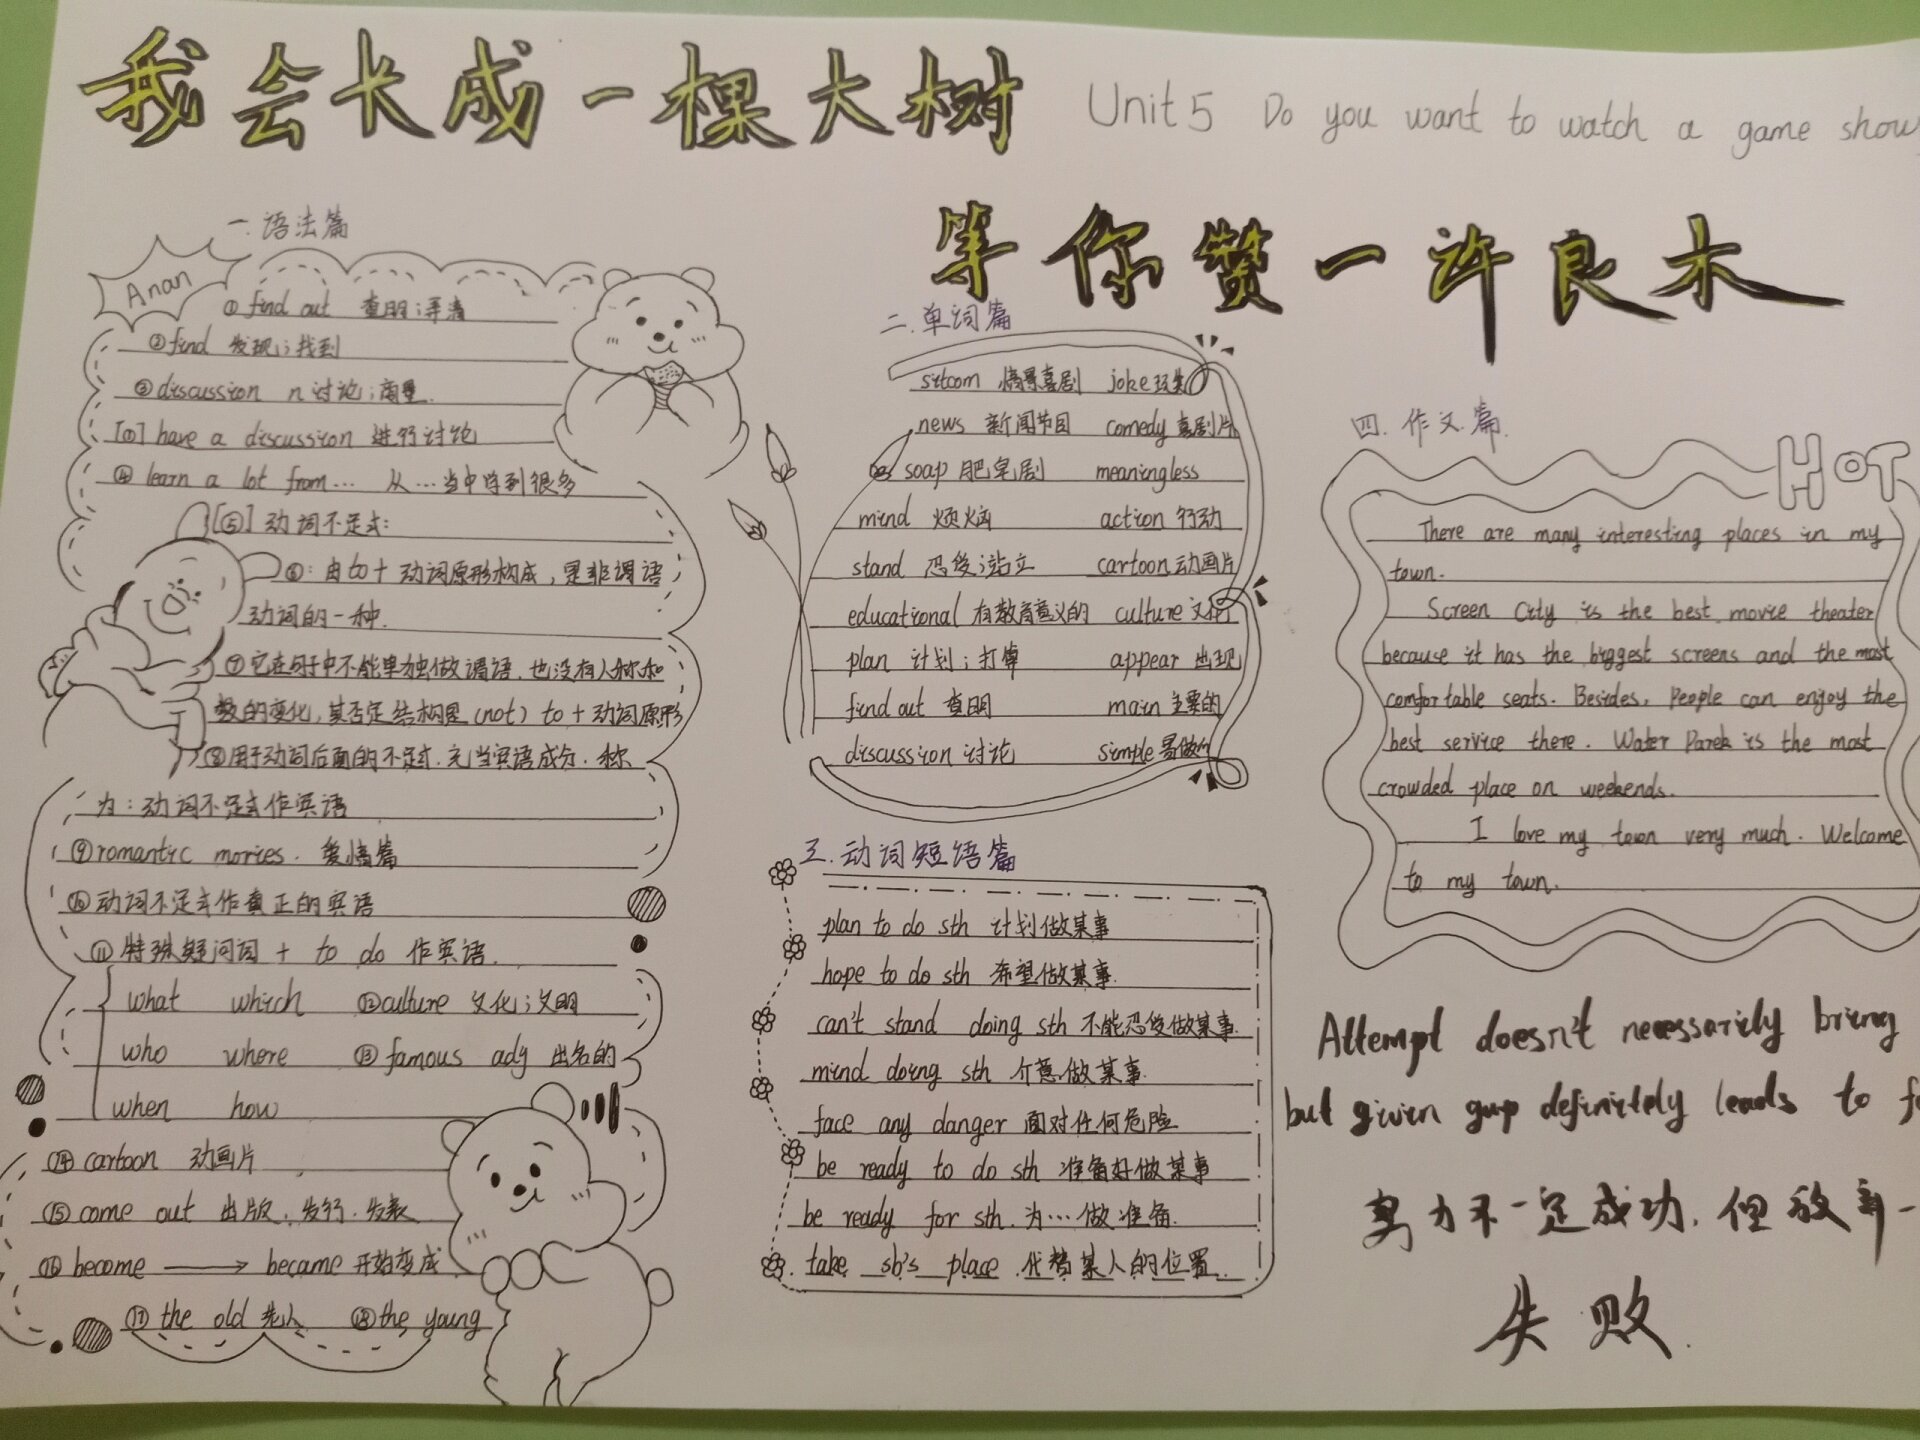 我会长成一棵大树
Unit 5 Do you want to watch a game show
等你赞一许良木
一.语法篇
Anan
① find out 查明;弄清
② find 发现;找到
③ discussion n 讨论;商量.
[①] have a discussion 进行讨论
④ learn a lot from… 从…当中学到很多
[⑤] 动词不定式:
⑥:由to+动词原形构成,是非谓语
动词的一种.
⑦它在句子中不能单独做谓语.也没有人称和
数的变化,其否定结构是(not) to+动词原形
⑧用于动词后面的不定式.充当宾语成分.称
为:动词不定式作宾语
⑨romantic movies. 爱情篇
⑩动词不定式作真正的宾语
⑪特殊疑问词 + to do 作宾语.
what which ⑫culture 文化;文明
who where ⑬ famous adj 出名的
when how
⑭ cartoon 动画片
⑮ come out 出版.发行.发表
⑯ become → became 开始变成
⑰ the old 老人 ⑱ the young
二.单词篇
sitcom 情景喜剧 joke 玩笑
news 新闻节目 comedy 喜剧片
soap 肥皂剧 meaningless
mind 烦恼 action 行动
stand 忍受;站立 cartoon 动画片
educational 有教育意义的 culture 文化
plan 计划;打算 appear 出现
find out 查明 main 主要的
discussion 讨论 simple 易做的
三.动词短语篇
plan to do sth 计划做某事
hope to do sth 希望做某事.
can't stand doing sth 不能忍受做某事.
mind doing sth 介意做某事.
face any danger 面对任何危险
be ready to do sth 准备好做某事
be ready for sth.为…做准备.
take sb's place .代替某人的位置.
四.作文篇.
HOT
There are many interesting places in my
town.
Screen City is the best movie theater
because it has the biggest screens and the most
comfortable seats. Besides, People can enjoy the
best service there. Water Park is the most
crowded place on weekends.
I love my town very much. Welcome
to my town.
Attempt doesn't necessarily bring
but givin gup definitely leads to
努力不一定成功,但放弃一
失败.